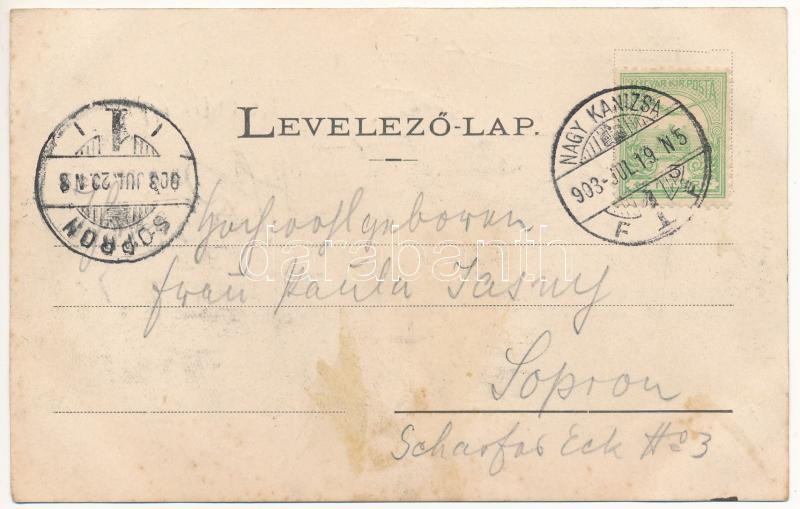 MAGYAR KIR. POSTA
LEVELEZŐ-LAP.
NAGY KANIZSA
903 JUL. 19. N 5
F 1
SOPRON
903 JUL. 20. N 8
1
Hochwohlgeboren
Frau Paula Jasny
Sopron
Scharfes Eck No 3
darabanth